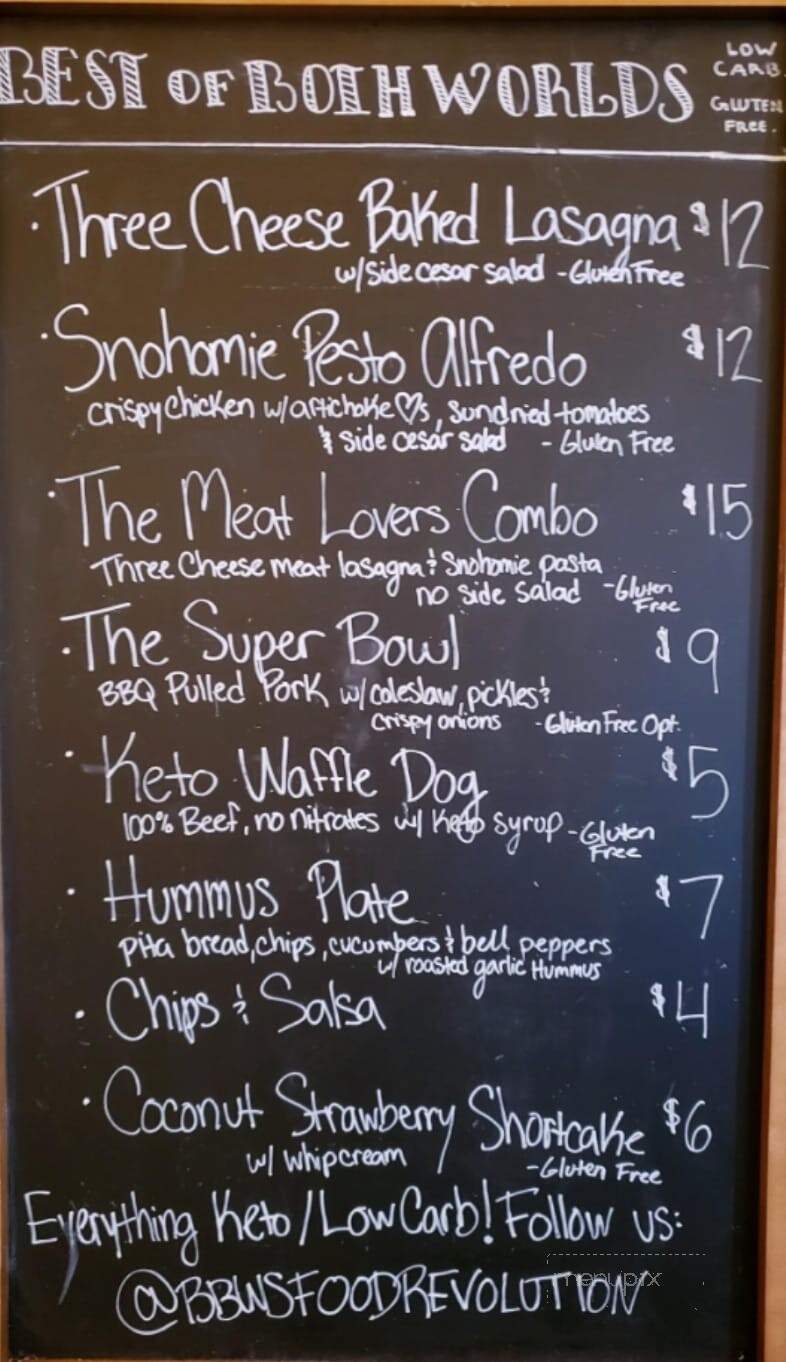 BEST OF BOTH WORLDS
LOW
CARB.
GLUTEN
FREE.
· Three Cheese Baked Lasagna $12
w/side cesar salad - Gluten Free
· Snohomie Pesto Alfredo $12
crispy chicken w/artichoke ♡s, sundried tomatoes
& side cesar salad - Gluten Free
· The Meat Lovers Combo $15
Three Cheese meat lasagna & Snohomie pasta
no side salad - Gluten
Free
· The Super Bowl $9
BBQ Pulled Pork w/coleslaw, pickles &
crispy onions - Gluten Free Opt.
· Keto Waffle Dog $5
100% Beef, no nitrates w/ Keto syrup - Gluten
Free
· Hummus Plate $7
pita bread, chips, cucumbers & bell peppers
w/ roasted garlic Hummus
· Chips & Salsa $4
· Coconut Strawberry Shortcake $6
w/ whipcream - Gluten Free
Everything Keto/Low Carb! Follow us:
@BBWSFOODREVOLUTION
menupix